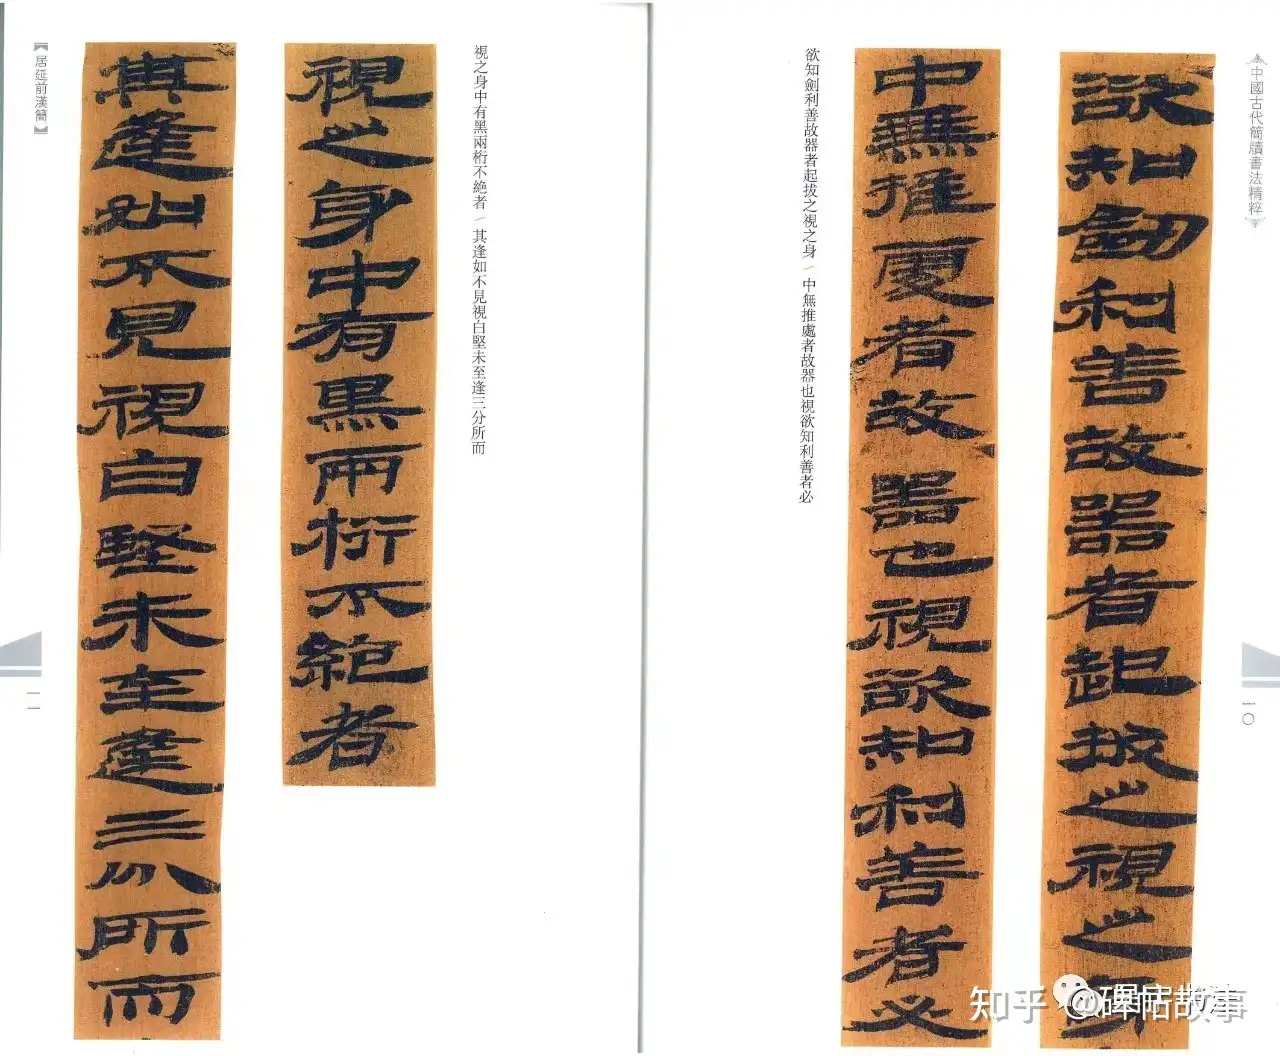 【中國古代簡牘書法精粹】
一〇
欲知劍利善故器者起拔之視之身
中無推處者故器也視欲知利善者必
欲知劍利善故器者起拔之視之身 中無推處者故器也視欲知利善者必
視之身中有黑兩桁不絶者 其逢如不見視白堅未至逢三分所而
視之身中有黑兩桁不絶者
其逢如不見視白堅未至逢三分所而
【居延前漢簡】
一一
知乎 @碑帖故事